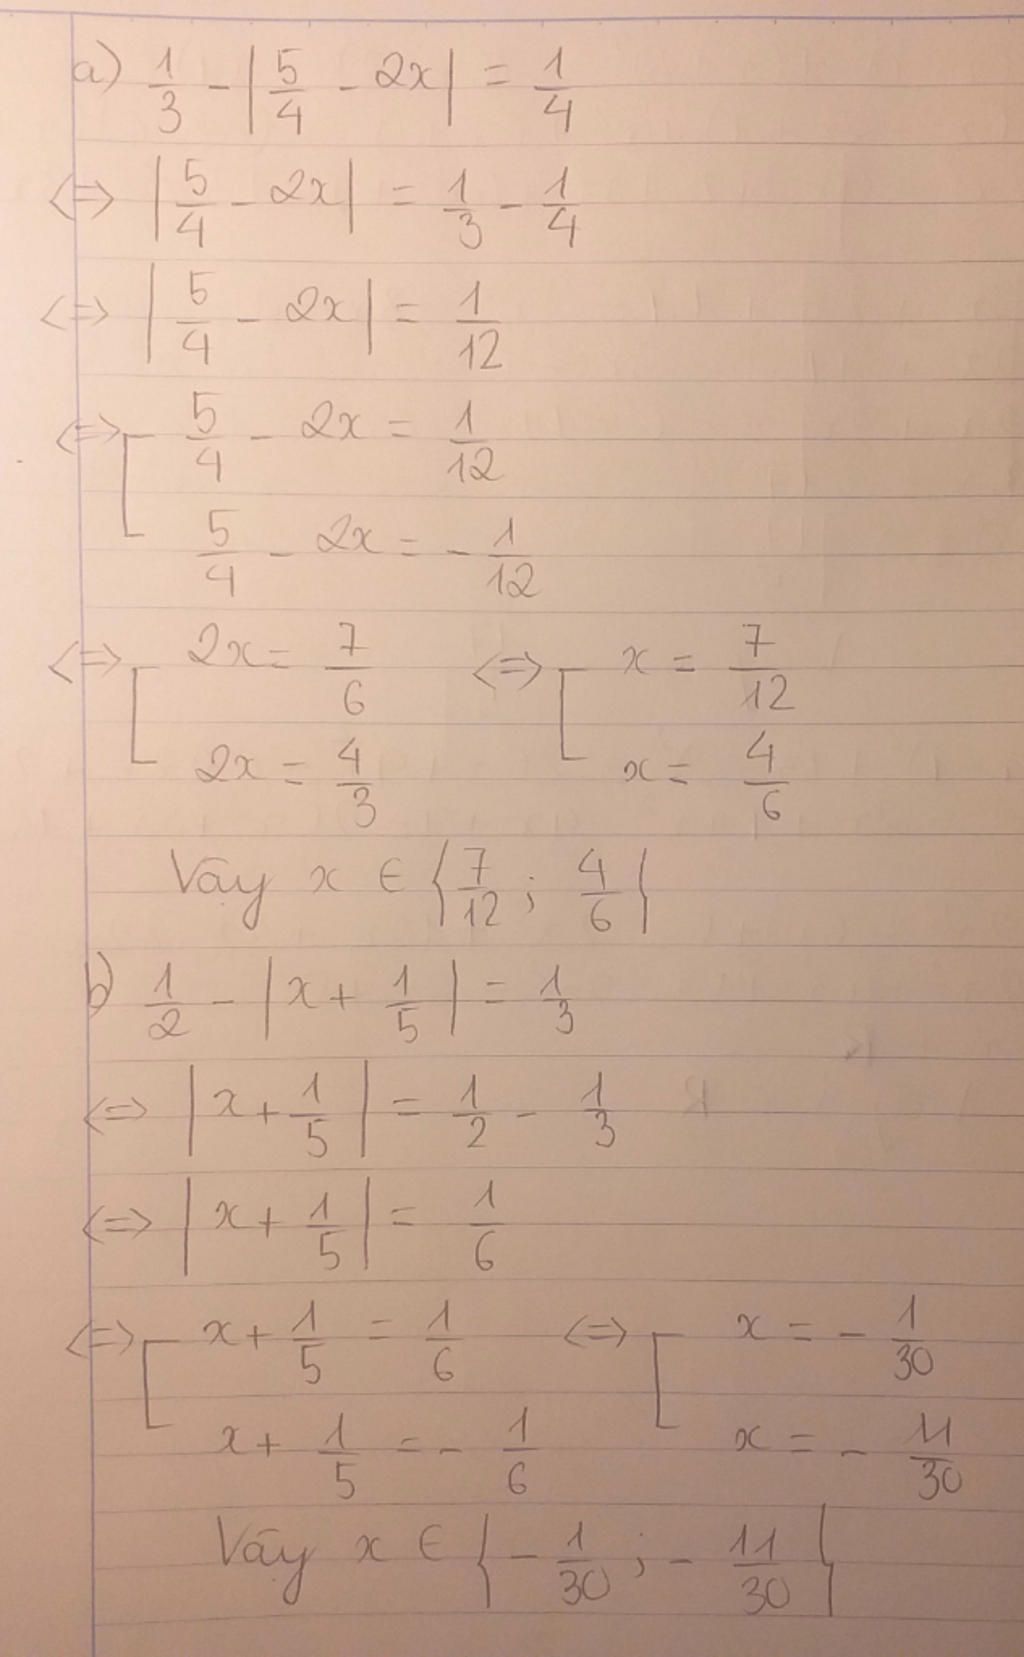 a) 1/3 - |5/4 - 2x| = 1/4
<=> |5/4 - 2x| = 1/3 - 1/4
<=> |5/4 - 2x| = 1/12
<=> [ 5/4 - 2x = 1/12
5/4 - 2x = - 1/12
<=> [ 2x = 7/6 <=> [ x = 7/12
2x = 4/3 x = 4/6
Vậy x ∈ {7/12 ; 4/6}
b) 1/2 - |x + 1/5| = 1/3
<=> |x + 1/5| = 1/2 - 1/3
<=> |x + 1/5| = 1/6
<=> [ x + 1/5 = 1/6 <=> [ x = - 1/30
x + 1/5 = - 1/6 x = - 11/30
Vậy x ∈ {- 1/30 ; - 11/30}